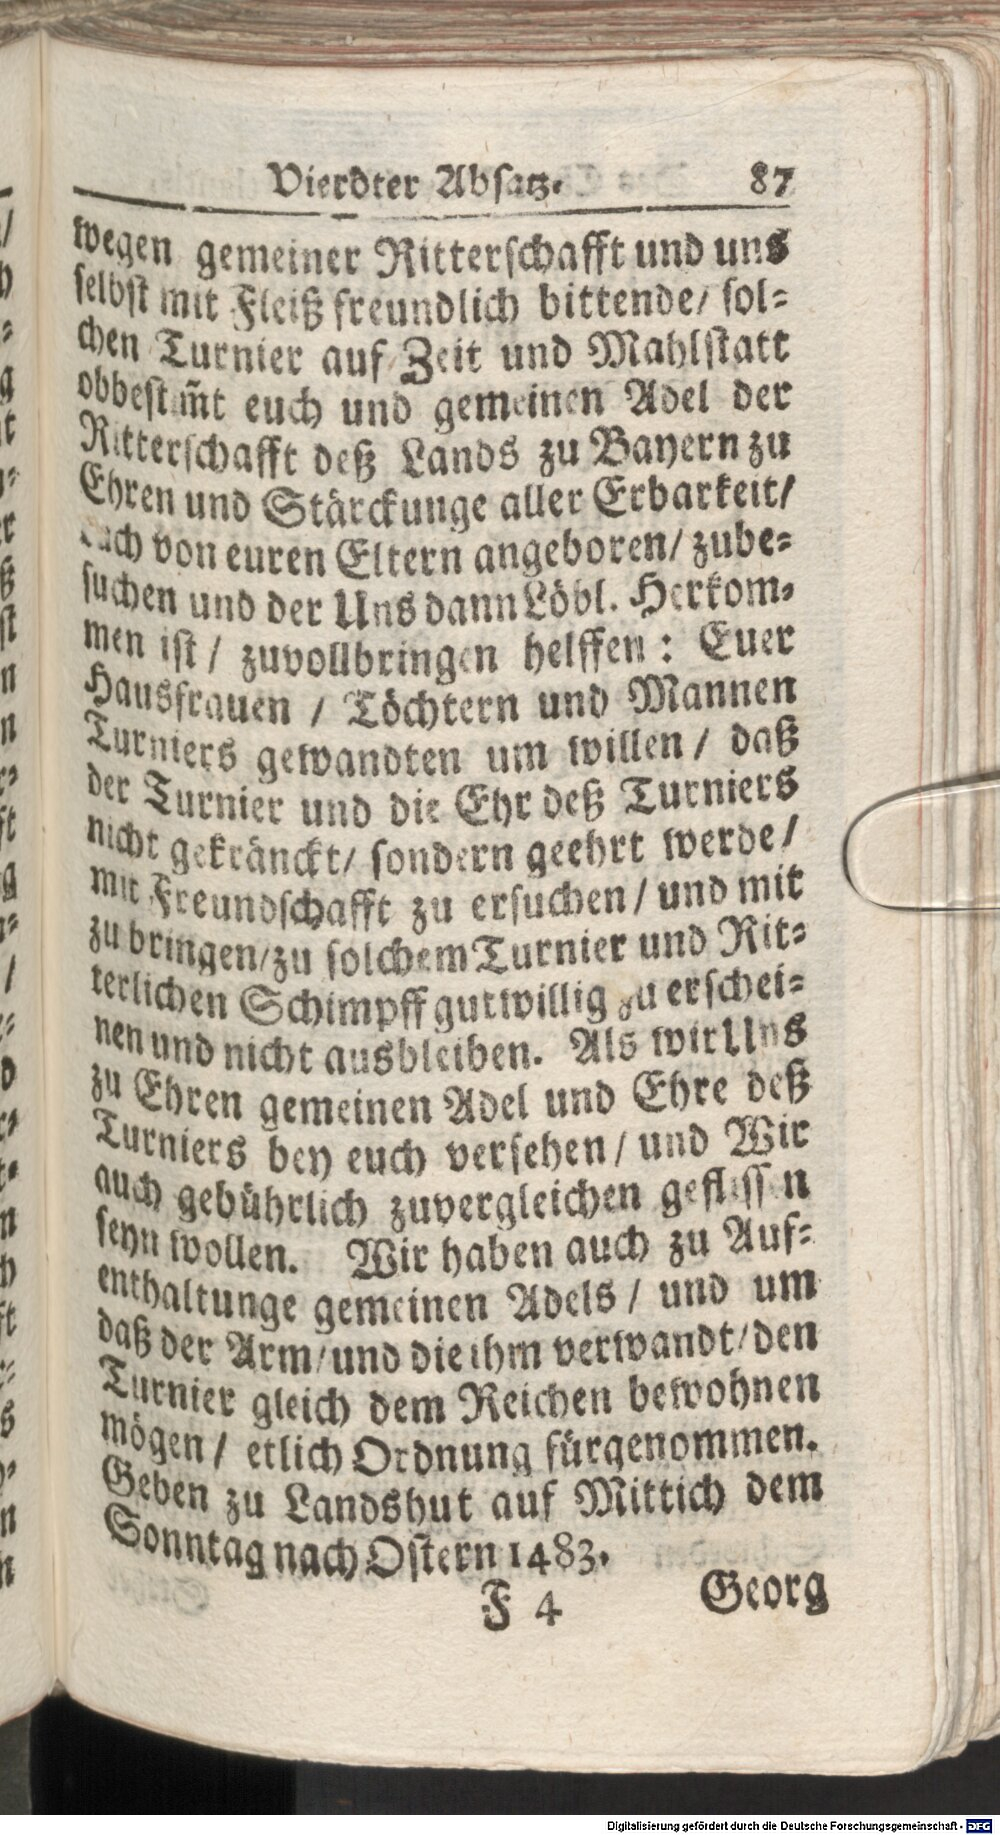 Vierdter Absatz. 87
wegen gemeiner Ritterschafft und uns
selbst mit Fleiß freundlich bittende/ sol-
chen Turnier auf Zeit und Mahlstatt
obbestim̃t euch und gemeinen Adel der
Ritterschafft deß Lands zu Bayern zu
Ehren und Stärckunge aller Erbarkeit/
euch von euren Eltern angeboren/ zube-
suchen und der Uns dann Löbl. Herkom-
men ist / zuvollbringen helffen : Euer
Hausfrauen / Töchtern und Mannen
Turniers gewandten um willen / daß
der Turnier und die Ehr deß Turniers
nicht gekränckt/ sondern geehrt werde/
mit Freundschafft zu ersuchen / und mit
zu bringen/zu solchem Turnier und Rit-
terlichen Schimpff gutwillig zu erschei-
nen und nicht ausbleiben. Als wir Uns
zu Ehren gemeinen Adel und Ehre deß
Turniers bey euch versehen / und Wir
auch gebührlich zuvergleichen geflissen
seyn wollen. Wir haben auch zu Auf-
enthaltunge gemeinen Adels / und um
daß der Arm/und die ihm verwandt/den
Turnier gleich dem Reichen bewohnen
mögen / etlich Ordnung fürgenommen.
Geben zu Landshut auf Mittich dem
Sonntag nach Ostern 1483.
F 4 Georg
Digitalisierung gefördert durch die Deutsche Forschungsgemeinschaft - DFG